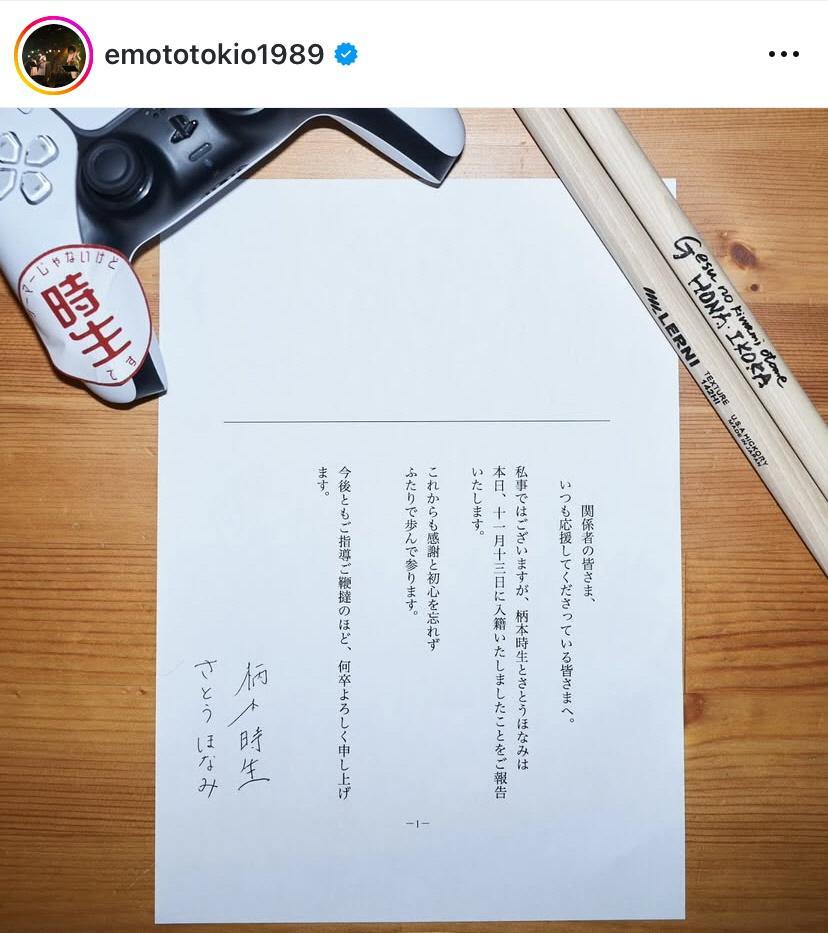 emototokio1989
ゲーマーじゃないけど
時生
です
Gesu no Kiwami otome
HONA. IKOKA
LERNI
TEXTURE
142HI
U.S.A HICKORY
MADE IN JAPAN
関係者の皆さま、
いつも応援してくださっている皆さまへ。
私事ではございますが、柄本時生とさとうほなみは
本日、十一月十三日に入籍いたしましたことをご報告
いたします。
これからも感謝と初心を忘れず
ふたりで歩んで参ります。
今後ともご指導ご鞭撻のほど、何卒よろしく申し上げ
ます。
柄本時生
さとうほなみ
－1－